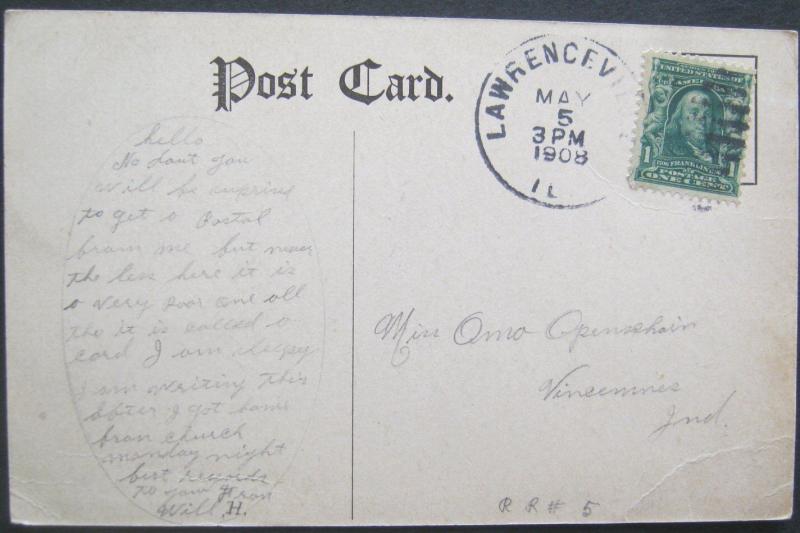 Post Card.
LAWRENCEVIL
MAY
5
3PM
1908
IL
UNITED STATES OF AMERICA
1 BENJ. FRANKLIN 1
POSTAGE
ONE CENT
hello
No dout you
Will be suprised
to get a Postal
from me but never
the less here it is
a very poor one all
tho it is called a
card I am sleepy
I am writing this
after I got home
from church
monday night
best regards
to you from
Will. H.
Miss Oma Openchain
Vincennes
Ind.
R R # 5